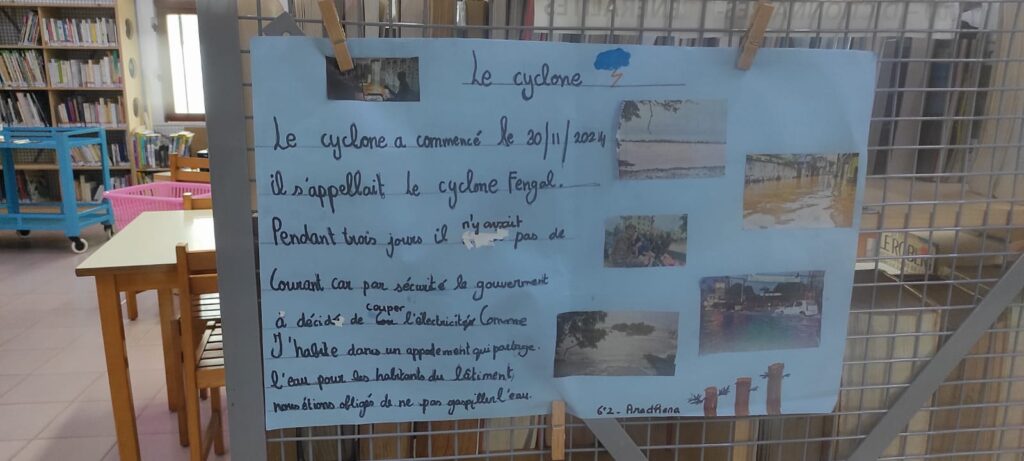 Le cyclone
Le cyclone a commencé le 30/11/2024
il s'appellait Le cyclone Fengal.
Pendant trois jours il n'y avait pas de
Courant car par sécurité le gouverment
à décidé de couper l'électricité. Comme
J'habite dans un appartement qui partage.
l'eau pour les habitants du bâtiment,
nous étions obligés de ne pas gaspiller l'eau.
6°2 - Anadhana